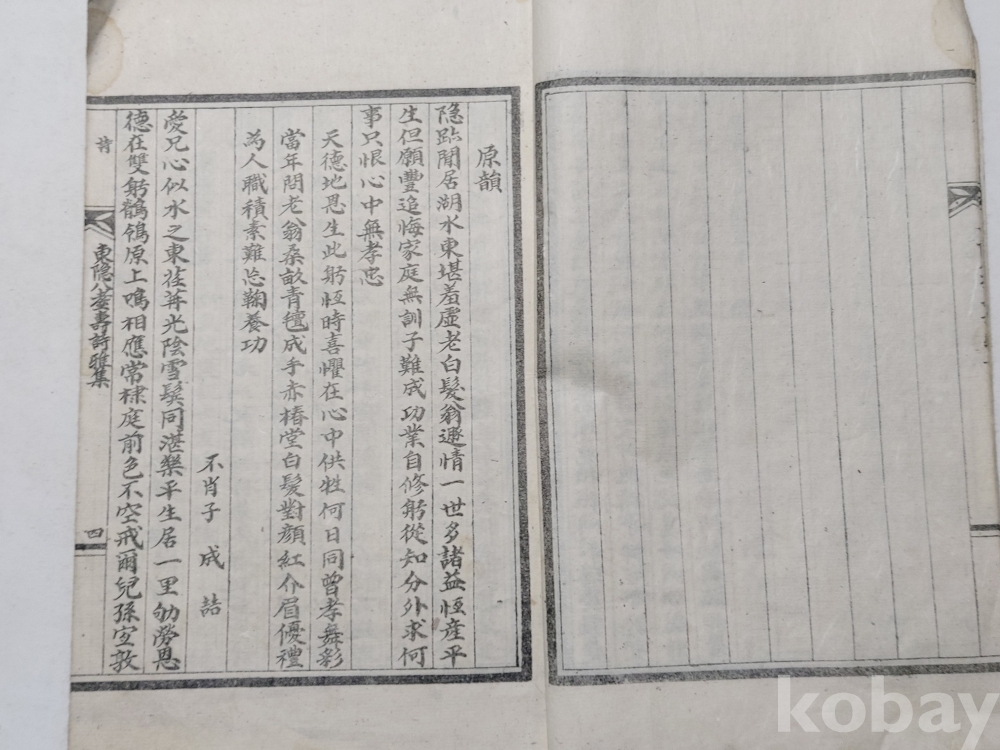 原韻
隐跡閒居湖水東堪羞虛老白髮翁遯情一世多諸益恆産平
生但願豐追悔家庭無訓子難成功業自修躬從知分外求何
事只恨心中無孝忠
天德地恩生此躬恆時喜懼在心中供牲何日同曾孝舞彩
當年問老翁桑畝青氊成手赤椿堂白髮對顔紅介眉優禮
為人職積素難忘鞠養功
不肖子 成 誥
愛兄心似水之東荏苒光陰雪鬂同湛樂平生居一里劬勞恩
德在雙躬鶺鴒原上鳴相應常棣庭前色不空戒爾兒孫宜敦
詩
東隐八耋壽詩雅集
四
kobay